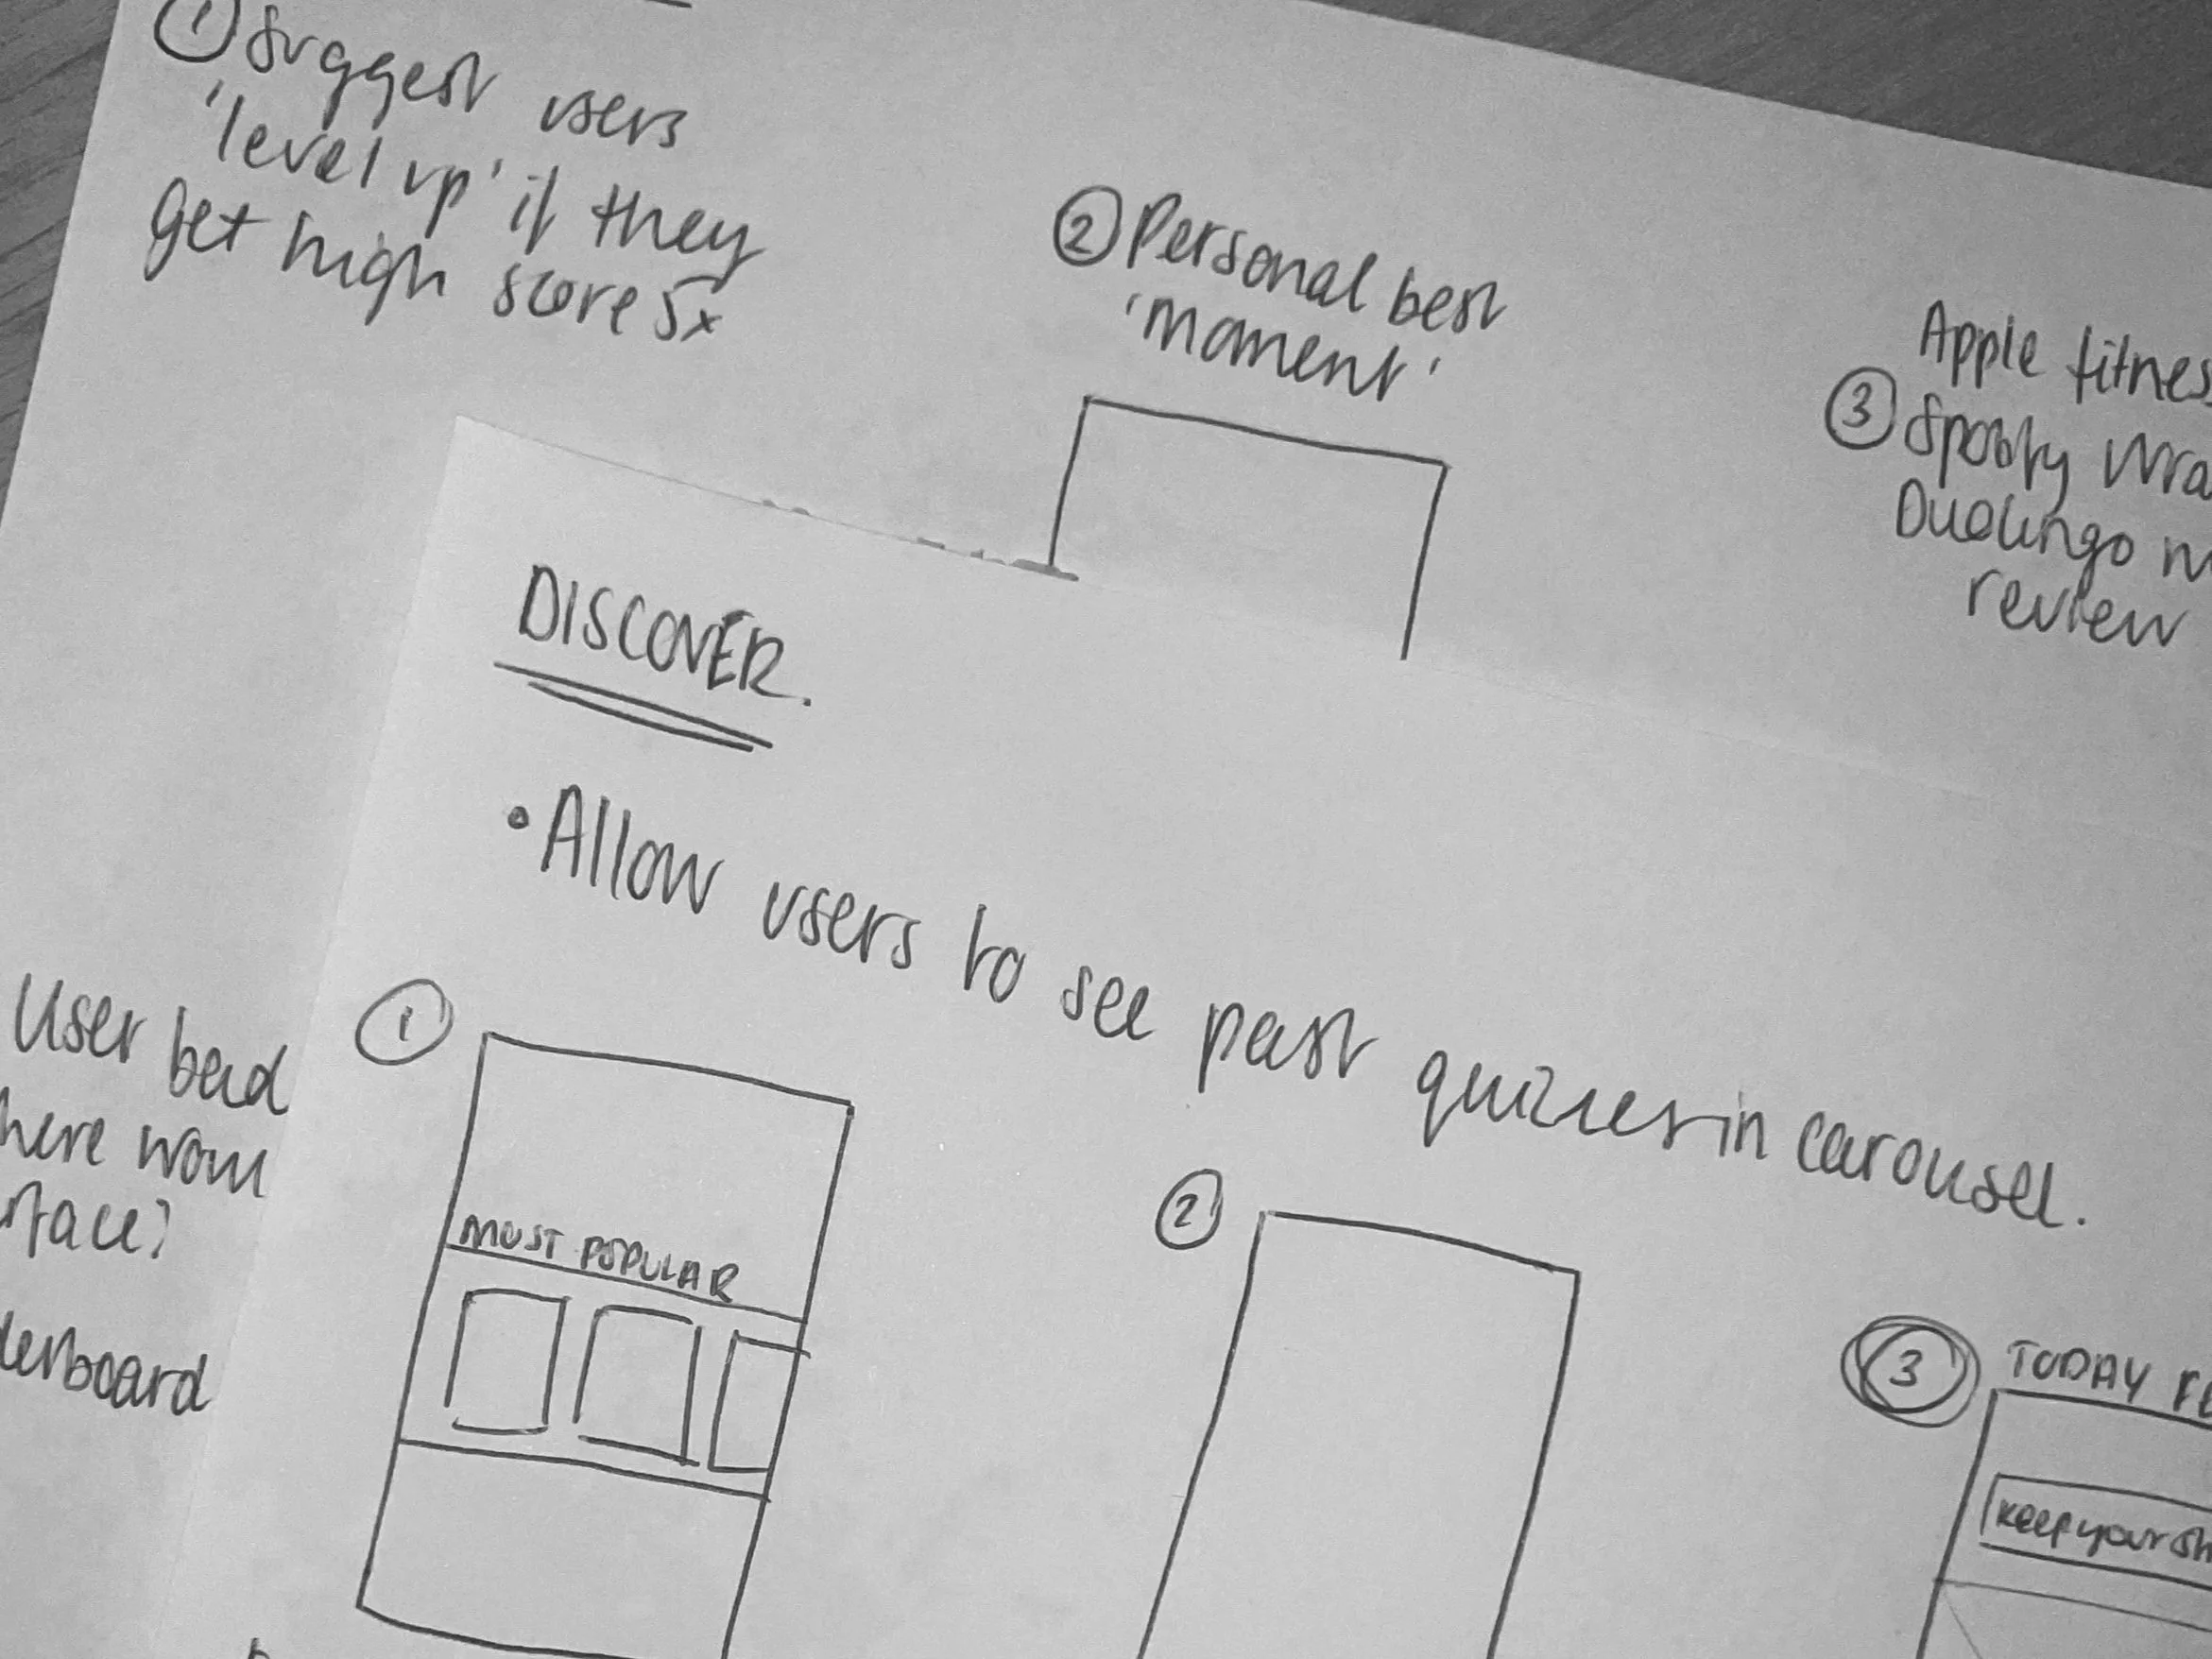 ① Suggest users
'level up' if they
get high score 5x
② Personal best
'moment'
Apple fitnes
③ Spotify Wra
Duolingo
review
DISCOVER.
• Allow users to see past quizzes in carousel.
User bad
here
erboard
①
MOST POPULAR
②
③ TODAY
keep your